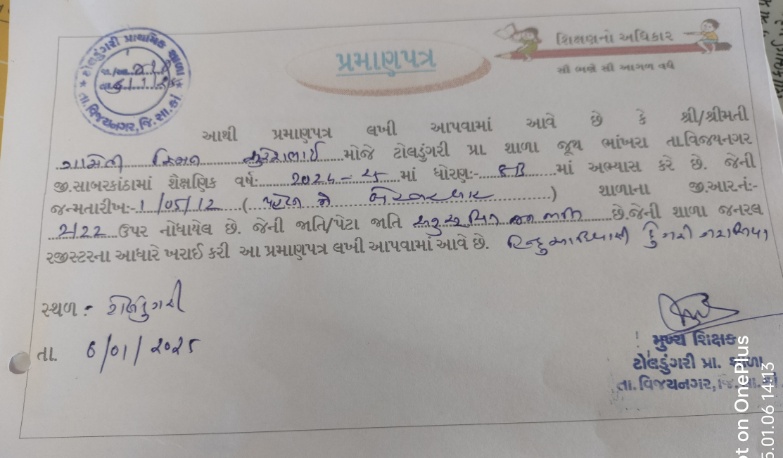 ટોલડુંગરી પ્રાથમિક શાળા
તા.વિજયનગર, જિ.સા.કાં
પ્રમાણપત્ર
શિક્ષણનો અધિકાર
સૌ ભણે સૌ આગળ વધે
આથી પ્રમાણપત્ર લખી આપવામાં આવે છે કે શ્રી/શ્રીમતી
ગામેતી સુરેશભાઈ મોજે ટોલડુંગરી પ્રા શાળા જૂથ ભાંખરા તા.વિજયનગર
જી.સાબરકાંઠામાં શૈક્ષણિક વર્ષ:- 2024-25 માં ધોરણ:- 8B માં અભ્યાસ કરે છે. જેની
જન્મતારીખ:- 1/05/12 ( પહેલી મે ) શાળાના જી.આર.નં:-
ઉપર નોંધાયેલ છે. જેની જાતિ/પેટા જાતિ અનુસૂચિત જન જાતિ છે.જેની શાળા જનરલ
રજીસ્ટરના આધારે ખરાઈ કરી આ પ્રમાણપત્ર લખી આપવામાં આવે છે. હિન્દુ આદિવાસી ડુંગરી ગરાસિયા
સ્થળ : ટોલડુંગરી
તા. 6/01/2025
મુખ્ય શિક્ષક
ટોલડુંગરી પ્રા. શાળા
તા.વિજયનગર, જિ.સા.કાં
t on OnePlus
5.01.06 14:13